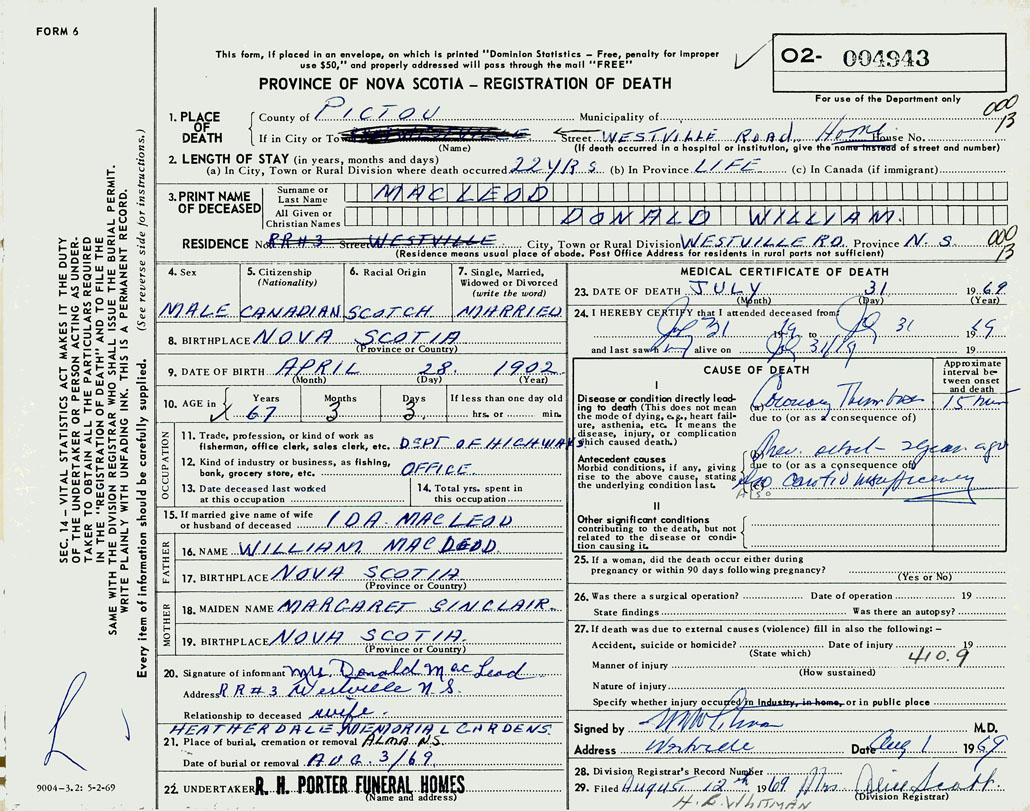 FORM 6
This form, if placed in an envelope, on which is printed "Dominion Statistics – Free, penalty for improper
use $50," and properly addressed will pass through the mail "FREE"
O2- 004943
For use of the Department only
PROVINCE OF NOVA SCOTIA – REGISTRATION OF DEATH
SEC. 14 – VITAL STATISTICS ACT MAKES IT THE DUTY
OF THE UNDERTAKER OR PERSON ACTING AS UNDER-
TAKER TO OBTAIN ALL THE PARTICULARS REQUIRED
IN THE "REGISTRATION OF DEATH" AND TO FILE THE
SAME WITH THE DIVISION REGISTRAR WHO SHALL ISSUE THE BURIAL PERMIT.
WRITE PLAINLY WITH UNFADING INK. THIS IS A PERMANENT RECORD.
Every item of information should be carefully supplied. (See reverse side for instructions.)
1. PLACE OF DEATH County of PICTOU Municipality of 000 13
If in City or To Street WESTVILLE ROAD, Home House No.
(Name) (If death occurred in a hospital or institution, give the name instead of street and number)
2. LENGTH OF STAY (in years, months and days)
(a) In City, Town or Rural Division where death occurred 22 YRS (b) In Province LIFE (c) In Canada (if immigrant)
3. PRINT NAME OF DECEASED Surname or Last Name MACLEOD
All Given or Christian Names DONALD WILLIAM.
RESIDENCE No. RR#3 Street WESTVILLE City, Town or Rural Division WESTVILLE RD. Province N.S. 000 13
(Residence means usual place of abode. Post Office Address for residents in rural parts not sufficient)
4. Sex 5. Citizenship (Nationality) 6. Racial Origin 7. Single, Married, Widowed or Divorced (write the word)
MALE CANADIAN SCOTCH MARRIED
8. BIRTHPLACE NOVA SCOTIA
(Province or Country)
9. DATE OF BIRTH APRIL 28 1902
(Month) (Day) (Year)
10. AGE in Years 67 Months 3 Days 3 If less than one day old hrs. or min.
OCCUPATION
11. Trade, profession, or kind of work as fisherman, office clerk, sales clerk, etc. DEPT OF HIGHWAYS
12. Kind of industry or business, as fishing, bank, grocery store, etc. OFFICE
13. Date deceased last worked at this occupation 14. Total yrs. spent in this occupation
15. If married give name of wife or husband of deceased IDA MACLEOD
FATHER
16. NAME WILLIAM MACLEOD.
17. BIRTHPLACE NOVA SCOTIA
(Province or Country)
MOTHER
18. MAIDEN NAME MARGARET SINCLAIR.
19. BIRTHPLACE NOVA SCOTIA.
(Province or Country)
20. Signature of informant Mrs. Donald MacLeod
Address RR#3 Westville N.S.
Relationship to deceased wife.
HEATHERDALE MEMORIAL GARDENS
21. Place of burial, cremation or removal ALMA N.S.
Date of burial or removal AUG. 3/69
22. UNDERTAKER R. H. PORTER FUNERAL HOMES
(Name and address)
9004–3.2: 5-2-69
MEDICAL CERTIFICATE OF DEATH
23. DATE OF DEATH JULY 31 1969
(Month) (Day) (Year)
24. I HEREBY CERTIFY that I attended deceased from:
July 31 19 to July 31 1969
and last saw him alive on July 31/19 19
CAUSE OF DEATH Approximate interval between onset and death
I
Disease or condition directly leading to death (This does not mean the mode of dying, e.g., heart failure, asthenia, etc. It means the disease, injury, or complication which caused death.)
(a) Coronary Thrombosis 15 min
due to (or as a consequence of)
Antecedent causes
Morbid conditions, if any, giving rise to the above cause, stating the underlying condition last.
(b) Prev. attack 2 years ago
due to (or as a consequence of)
Also
II
Other significant conditions
contributing to the death, but not related to the disease or condition causing it.
25. If a woman, did the death occur either during
pregnancy or within 90 days following pregnancy?
(Yes or No)
26. Was there a surgical operation? Date of operation 19
State findings Was there an autopsy?
27. If death was due to external causes (violence) fill in also the following: –
Accident, suicide or homicide? Date of injury 19
(State which) 410.9
Manner of injury
(How sustained)
Nature of injury
Specify whether injury occurred in Industry, in home, or in public place
Signed by M.D.
Address Westville Date Aug 1 1969
28. Division Registrar's Record Number
29. Filed August 12th 1969 Mrs Alice Scott
(Division Registrar)
H. E. WHITMAN